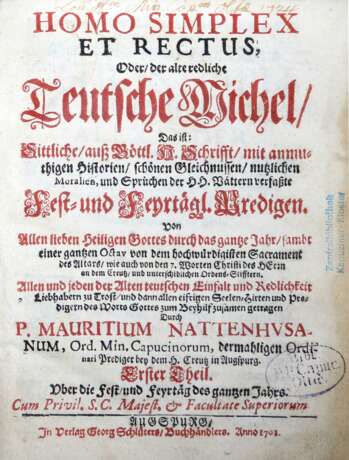 HOMO SIMPLEX
ET RECTUS,
Oder/ der alte redliche
Teutsche Michel/
Das ist:
Sittliche/ auß Göttl. H. Schrifft/ mit anmu-
thigen Historien/ schönen Gleichnussen/ nutzlichen
Moralien, und Sprüchen der HH. Vättern verfaßte
Fest- und Feyrtägl. Predigen.
Von
Allen lieben Heiligen Gottes durch das gantze Jahr/ sambt
einer gantzen Octav von dem hochwürdigisten Sacrament
des Altars/ wie auch von den 7. Worten Christi des HErrn
an dem Creutz/ und unterschidlichen Ordens-Stifftern.
Allen und jeden der Alten teutschen Einfalt und Redlichkeit
Liebhabern zu Trost/ und dann allen eifrigen Seelen-Hirten und Pre-
digern des Worts Gottes zum Beyhülff zusamen getragen
Durch
P. MAURITIUM NATTENHUSA-
NUM, Ord. Min. Capucinorum, dermahligen Ordi-
nari Prediger bey dem H. Creutz in Augspurg.
Erster Theil.
Uber die Fest und Feyrtäg des gantzen Jahrs.
Cum Privil. S. C. Majest. & Facultate Superiorum
AUGSPURG/
In Verlag Georg Schlüters/ Buchhändlers. Anno 1701.
Zentralbibliothek
Kapuziner-Kloster